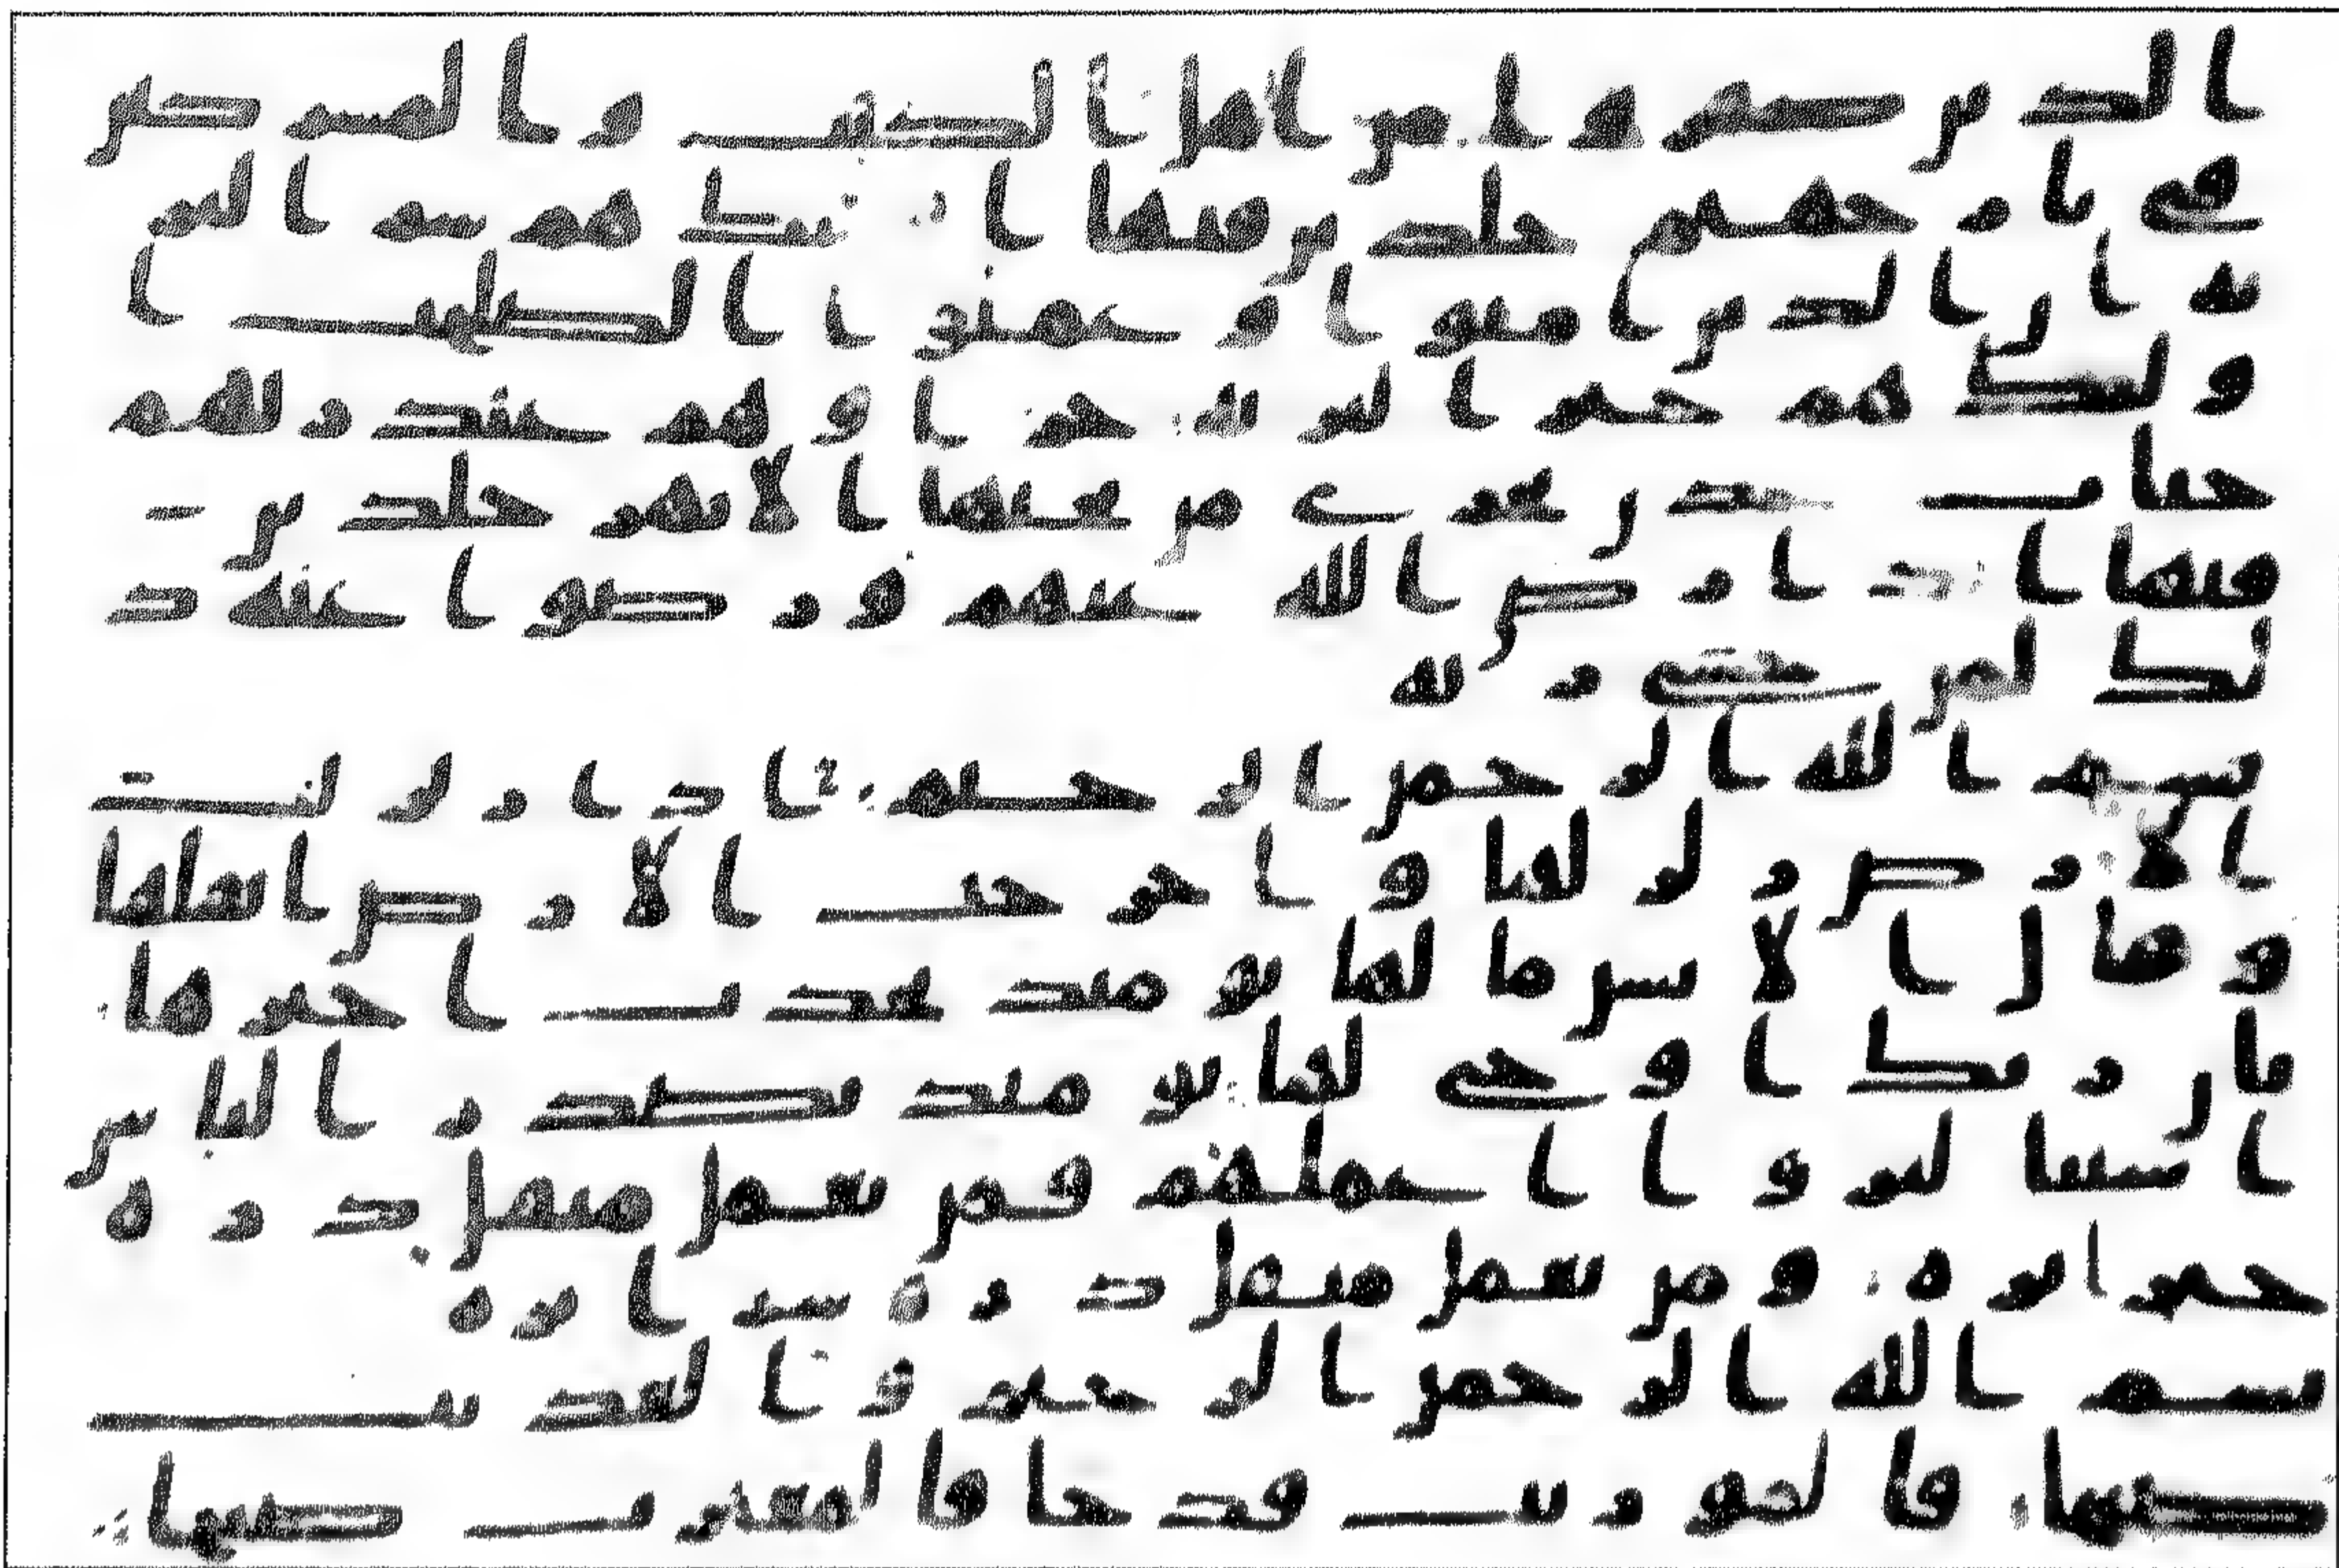 الذين كفروا من اهل الكتب والمشركين
في نار جهنم خلدين فيها ابدا اولئك هم شر البر
ية ان الذين امنوا وعملوا الصلحت ا
ولئك هم خير البرية جزاوهم عند ربهم
جنت عدن تجري من تحتها الانهر خلدين
فيها ابدا رضي الله عنهم ورضوا عنه ذ
لك لمن خشي ربه
بسم الله الرحمن الرحيم اذا زلزلت
الارض زلزلها واخرجت الارض اثقلها
وقال الانسن ما لها يومئذ تحدث اخبرها
بان ربك اوحى لها يومئذ يصدر الناس
اشتتا ليروا اعملهم فمن يعمل مثقل ذرة
خيرا يره ومن يعمل مثقل ذرة شرا يره
بسم الله الرحمن الرحيم والعديت
ضبحا فالموريت قدحا فالمغيرت صبحا